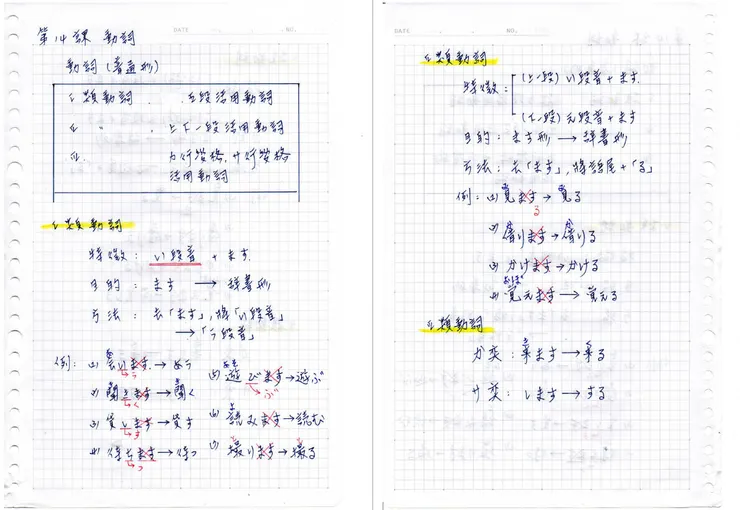 DATE NO.
第14課 動詞
動詞(普通形)
I 類動詞 . 五段活用動詞
II 〃 . 上下一段活用動詞
III. カ行変格,サ行変格
活用動詞
I 類動詞
特徵: い段音 + ます.
目的: ます → 辞書形
方法: 去「ます」,將「い段音」
→「う段音」
例: (1) 会います → 会う
う
(2) 聞きます → 聞く
く
(3) 貸します → 貸す
す
(4) 待ちます → 待つ
つ
(5) 遊びます → 遊ぶ
ぶ
(6) 読みます → 読む
(7) 撮ります → 撮る
DATE NO.
II 類動詞
特徵: (上一段) い段音 + ます.
(下一段) え段音 + ます
目的: ます形 → 辞書形
方法: 去「ます」,將語尾+「る」
例: (1) 見ます → 見る
る
(2) 借ります → 借りる
(3) かけます → かける
(4) 覚えます → 覚える
おぼ
III 類動詞
カ変: 来ます → 来る
サ変: します → する